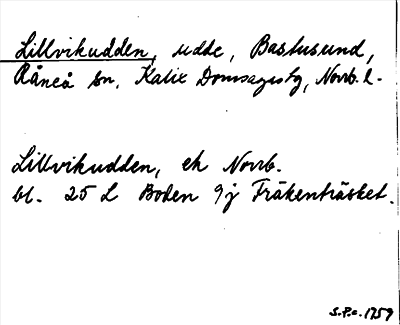 Lillvikudden, udde, Bastusund,
Råneå sn, Kalix Domsagastg, Norrb. l.
Lillvikudden, ek Norrb.
bl. 25 L Boden 9j Fräkenträsket.
S.P.c. 1759